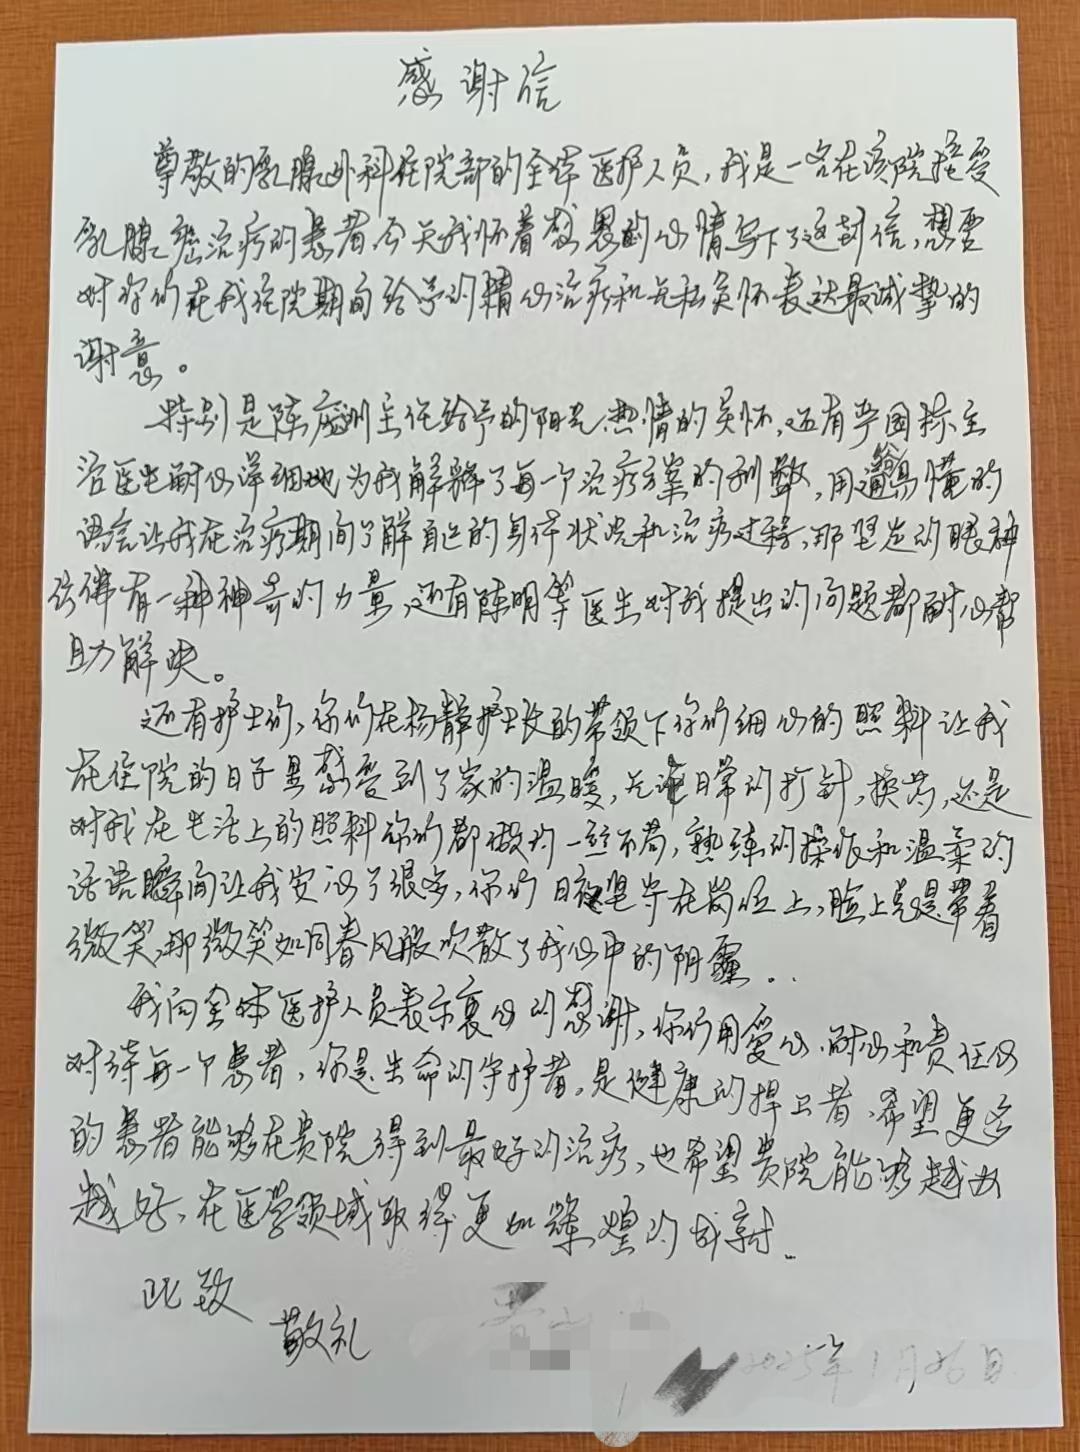 感谢信
尊敬的乳腺外科住院部的全体医护人员，我是一名在该院接受
乳腺癌治疗的患者，今天我怀着感恩的心情写下了这封信，想要
对你们在我住院期间给予的精心治疗和无私关怀表达最诚挚的
谢意。
特别是陈 主任给予的阳光、热情的关怀，还有 国标主
治医生耐心详细地为我解释了每一个治疗方案的利弊，用通俗易懂的
语言让我在治疗期间了解自己的身体状况和治疗过程，那坚定的眼神
仿佛有一种神奇的力量，还有陈明等医生对我提出的问题都耐心帮
助解决。
还有护士们，你们在杨静护士长的带领下你们细心的照料让我
在住院的日子里感受到了家的温暖，无论日常的打针，换药，还是
对我在生活上的照料你们都做的一丝不苟，熟练的操作和温柔的
话语瞬间让我安心了很多，你们日夜坚守在岗位上，脸上总是带着
微笑，那微笑如同春风般吹散了我心中的阴霾..
我向全体医护人员表示衷心的感谢，你们用爱心、耐心和责任心
对待每一个患者，你是生命的守护者，是健康的捍卫者，希望更多
的患者能够在贵院得到最好的治疗，也希望贵院能够越办
越好，在医学领域取得更加辉煌的成就.
此致
敬礼
2025年1月26日